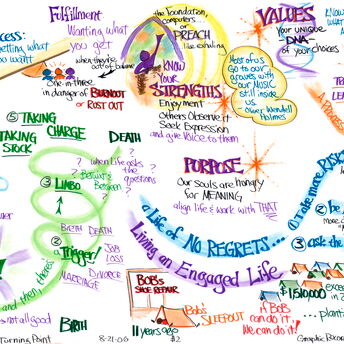 Fulfillment
Wanting what
you get
when they're
out of balance
One-in-three
in danger of BURNOUT
or RUST OUT
the foundation,
computers
or
PREACH
like exhaling
KNOW
YOUR
STRENGTHS
Enjoyment
Others Observe it
Seek Expression
and give Voice to them
VALUES
Your unique
DNA
of your choices
KNOW
WHAT
Most of us
GO to our
graves with
our MUSIC
still inside
us.
Oliver Wendell
Holmes
⑤ TAKING
TAKING CHARGE
STOCK
DEATH
when life asks
the
questions
③ LIMBO
Betwixt &
Between
BIRTH DEATH
② Trigger
JOB
LOSS
DIVORCE
MARRIAGE
and then there's
not all good
BIRTH
Turning Point
8-21-06
#2
PURPOSE
Our souls are hungry
for MEANING
align life & work with THAT
a Life of NO REGRETS...
Living an Engaged Life
① Take more RISKS
② be
③ ask the
BOB'S
SHOE REPAIR
11 years ago
Bob's
SLEEPOUT
if BOB
can do it.
We can do it!
1,510,000
in 2
...plant
Graphic Recor